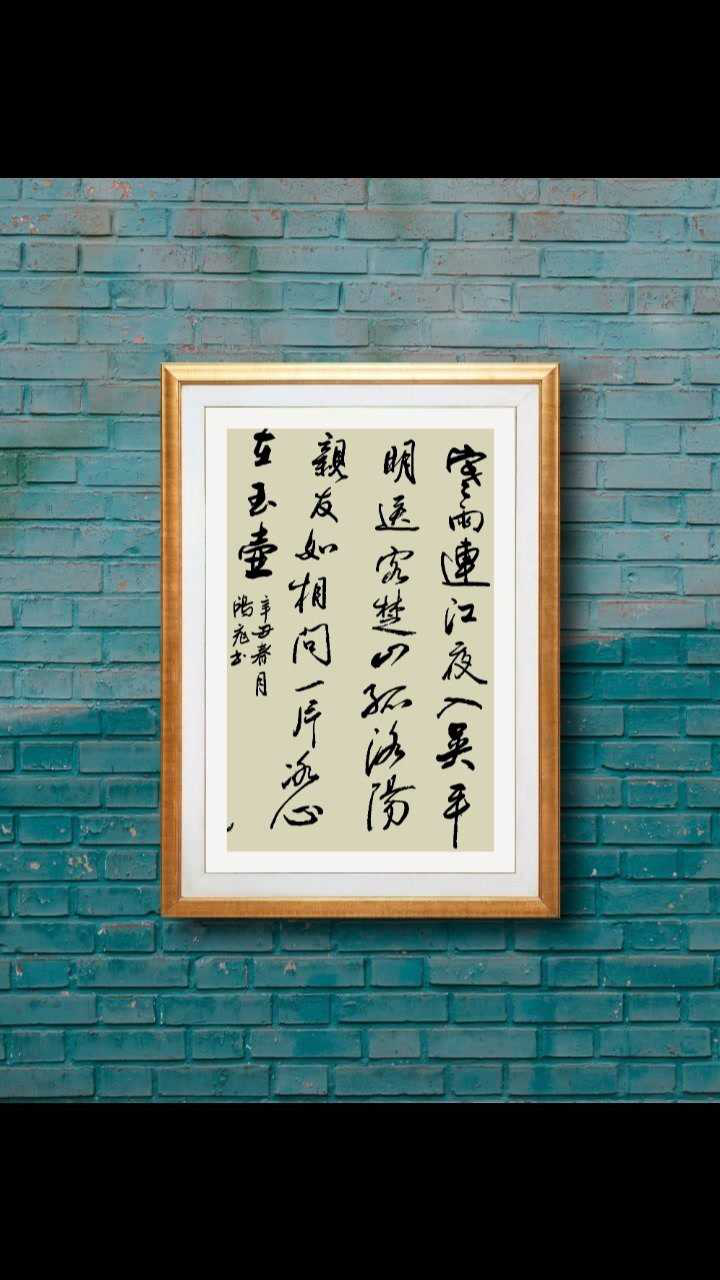 寒雨連江夜入吳平
明送客楚山孤洛陽
親友如相問一片冰心
在玉壺
辛丑春月
陽书